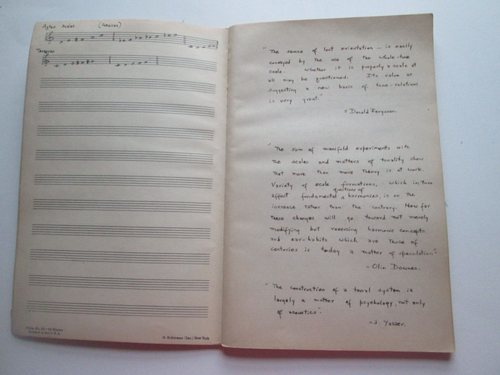 "The sense of lost orientation — is easily
conveyed by the use of the whole-tone
scale. Whether it is properly a scale at
all may be questioned. Its value as
suggesting a new basis of tone-relations
is very great."
- Donald Ferguson
"The sum of manifold experiments with
the scales and matters of tonality show
that more than mere theory is at work.
Variety of scale formations, which in turn
affect fundamental questions of harmonies, is on the
increase rather than the contrary. How far
these changes will go toward not merely
modifying but reversing harmonic concepts
and ear-habits which are those of
centuries is today a matter of speculation."
- Olin Downes.
"The construction of a tonal system is
largely a matter of psychology, not only
of acoustics."
- J. Yasser.